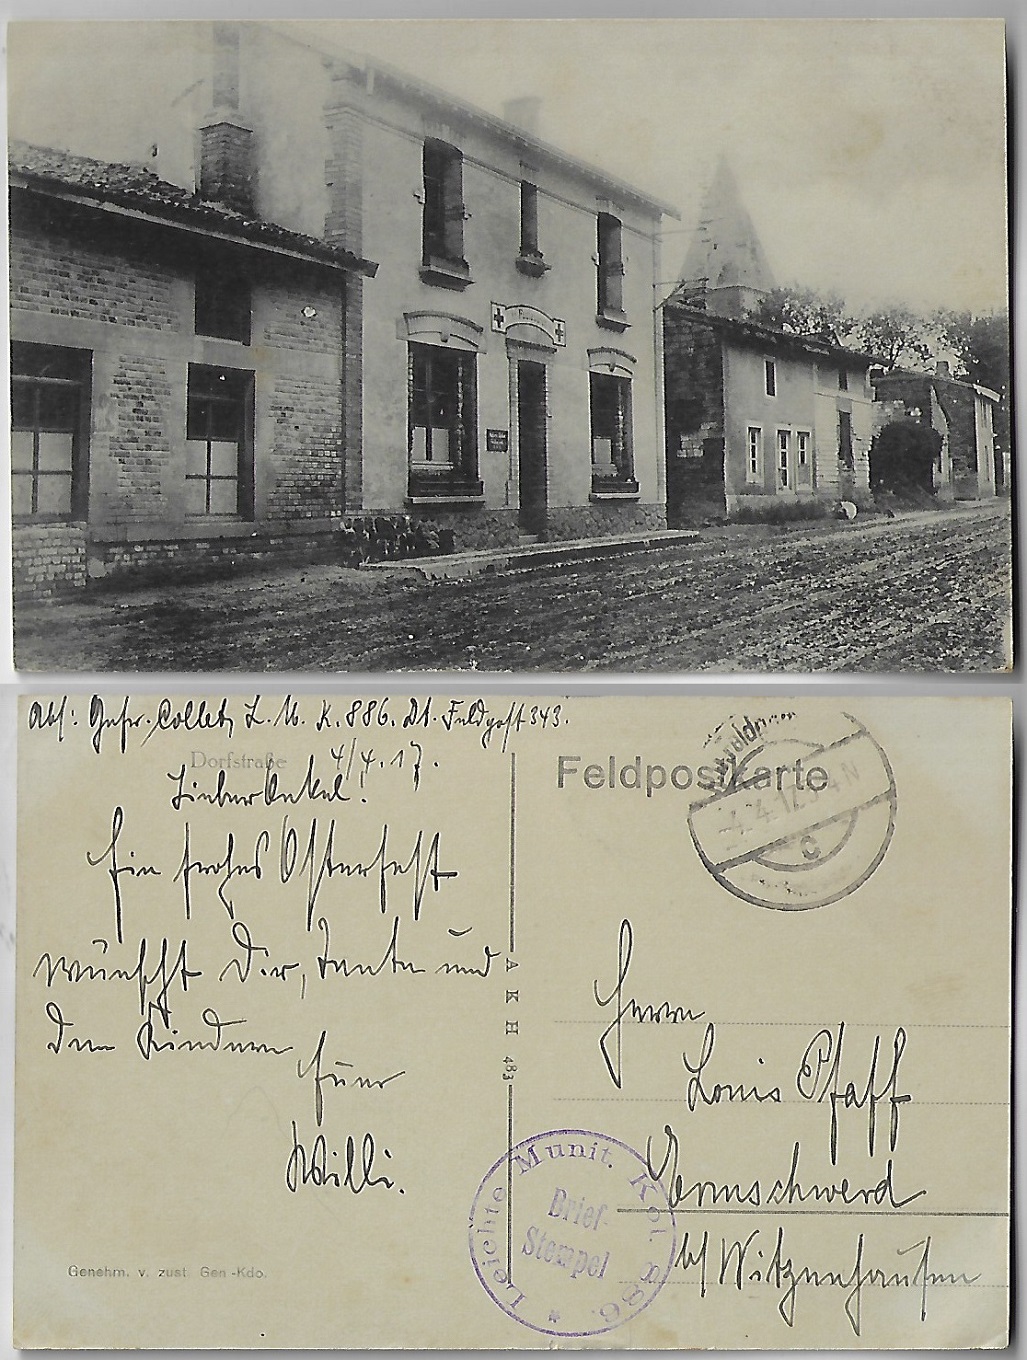 Abs: Gefr. Collet, L. M. K. 886. Dt. Feldpost 343.
Dorfstraße
4/4. 17.
Lieber Onkel!
Ein frohes Osterfest
wünscht Dir, Tante und
den Kindern
Euer
Willi.
Genehm. v. zust. Gen.-Kdo.
A K H 483
Feldpostkarte
-4.4.17.3-4 N
c
Herrn
Louis Pfaff
Ermschwerd
b/ Witzenhausen
Leichte Munit. Kol. 886. *
Brief-
Stempel